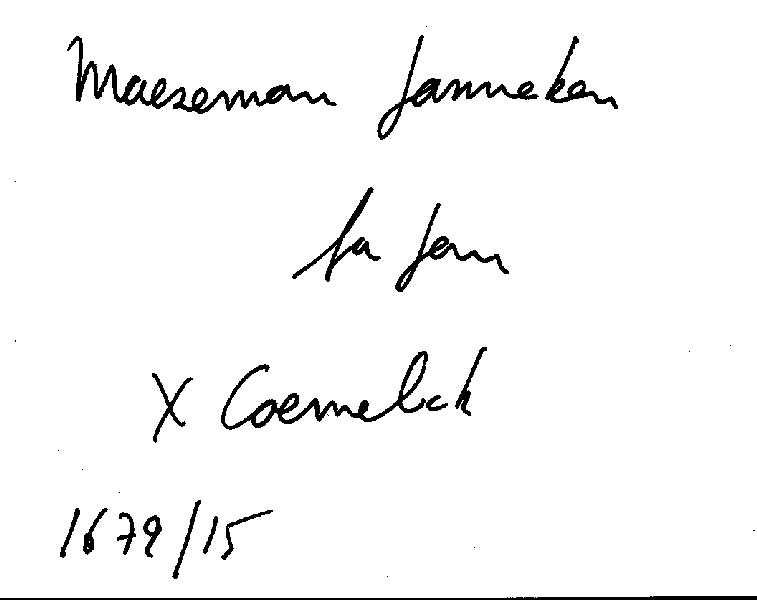 Maeseman Janneken
fa Jan
X Coemelck
1679/15